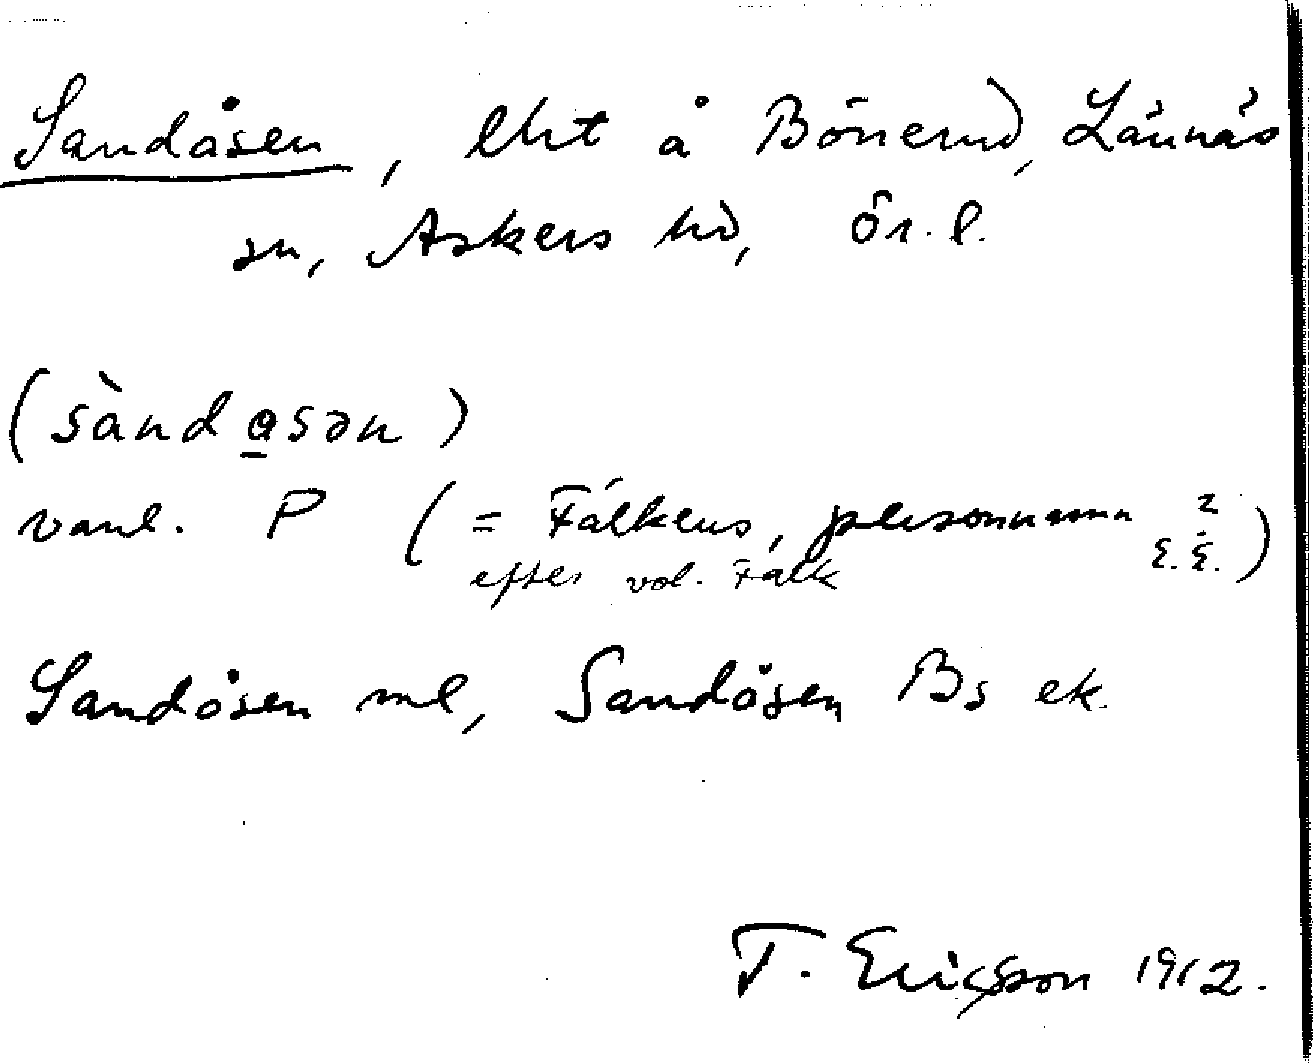 Sandåsen, lht å Bönerud, Lännäs
sn, Askers hd, Ör. l.
(sànda̲sən)
vanl. P (= Fälkens, personnamn
efter vol. Fälk
Sandåsen ml, Sandåsen Bs ek.
T. Ericsson 1912.